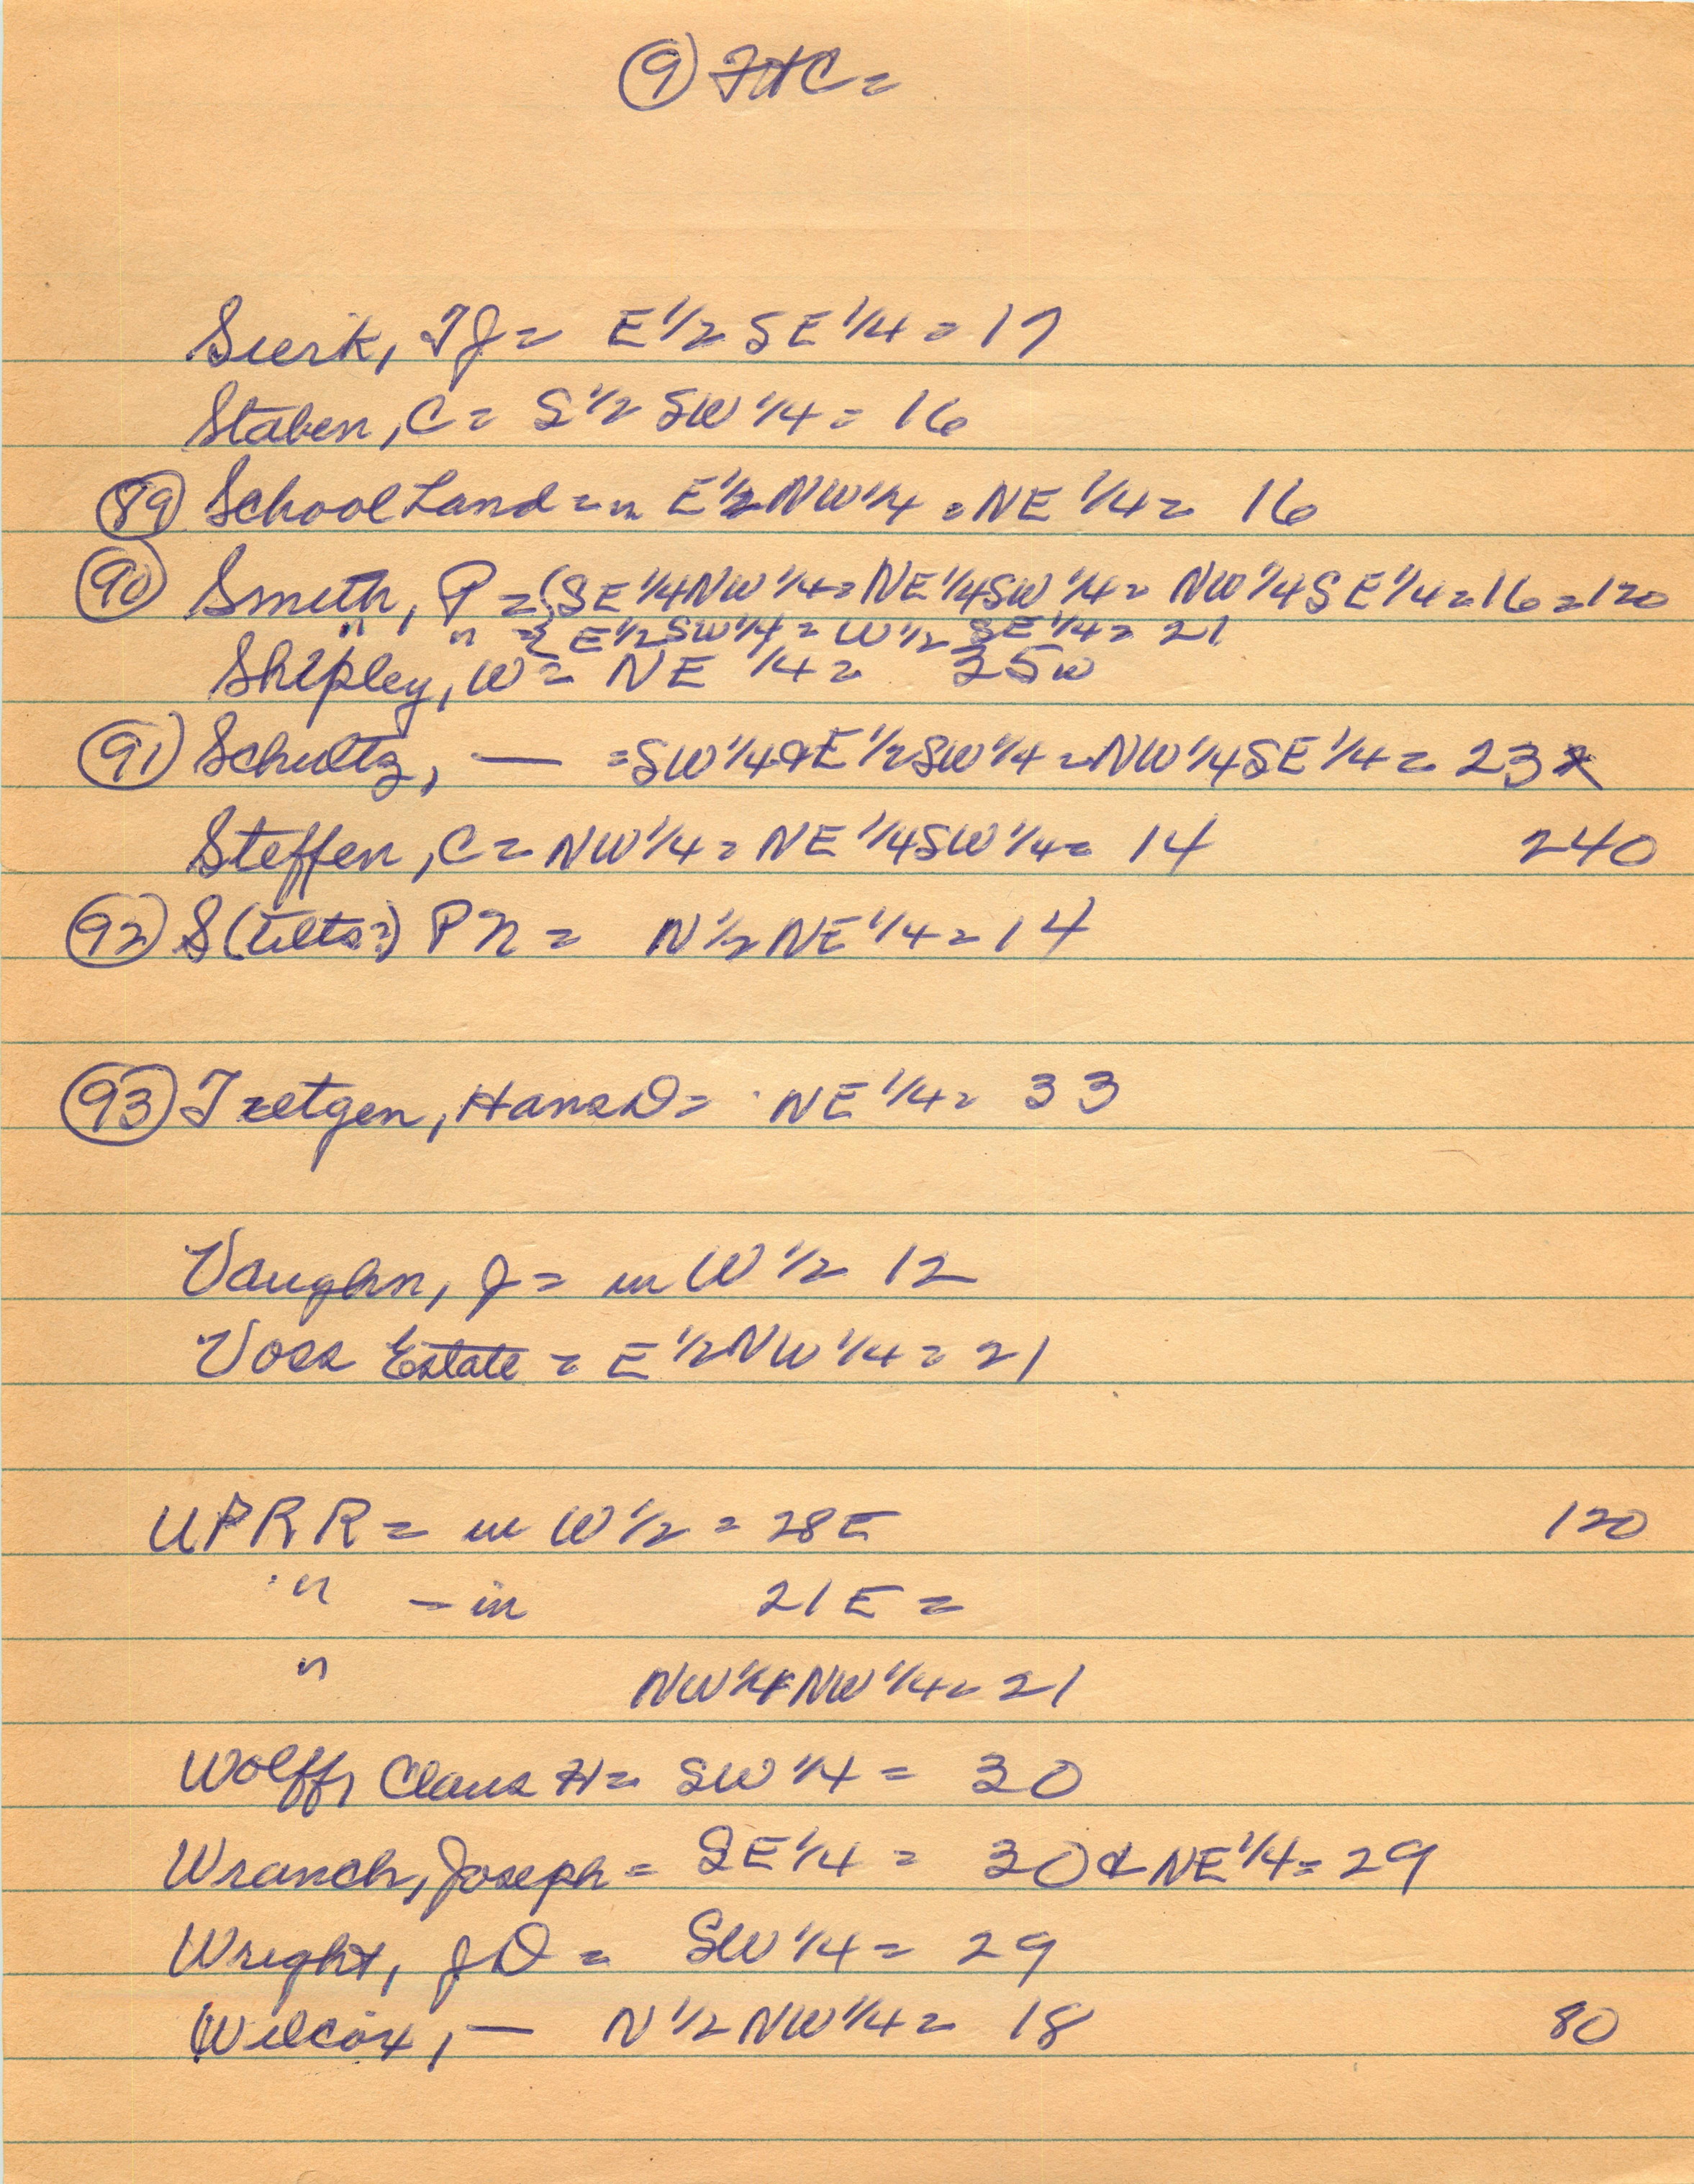 (9) FHC =
Sierk, TJ = E 1/2 SE 1/4 = 17
Staben, C = S 1/2 SW 1/4 = 16
(89) School Land = in E 1/2 NW 1/4 = NE 1/4 = 16
(90) Smith, P = {SE 1/4 NW 1/4 = NE 1/4 SW 1/4 = NW 1/4 SE 1/4 = 16 = 120
" " = { E 1/2 SW 1/4 = W 1/2 SE 1/4 = 21
Shipley, W = NE 1/4 = 35W
(91) Schultz, — = SW 1/4 & E 1/2 SW 1/4 = NW 1/4 SE 1/4 = 23
Steffen, C = NW 1/4 = NE 1/4 SW 1/4 = 14 240
(92) S(tilts?) PN = N 1/2 NE 1/4 = 14
(93) Tretgen, Hans D = NE 1/4 = 33
Vaughn, J = in W 1/2 12
Voss Estate = E 1/2 NW 1/4 = 21
UPRR = in W 1/2 = 28E 120
" - in 21E =
" NW 1/4 NW 1/4 = 21
Wolff, Claus H = SW 1/4 = 30
Wranch, Joseph = SE 1/4 = 30 & NE 1/4 = 29
Wright, JD = SW 1/4 = 29
Wilcox, — N 1/2 NW 1/4 = 18 80